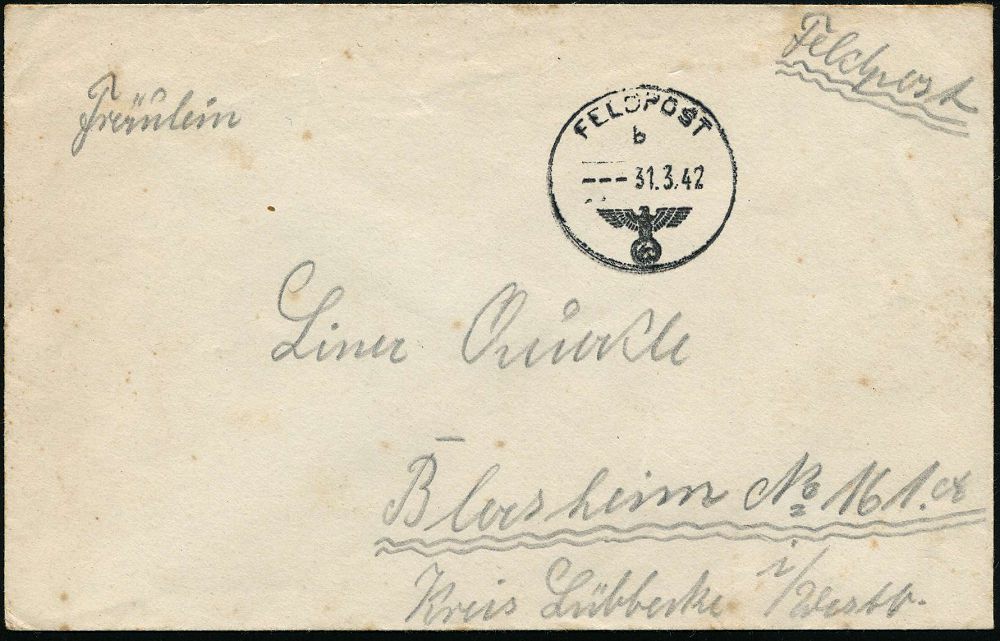 Feldpost
Fräulein
FELDPOST
b
--- 31.3.42
Liner
Blasheim No 161.a
Kreis Lübbecke i/Westf.